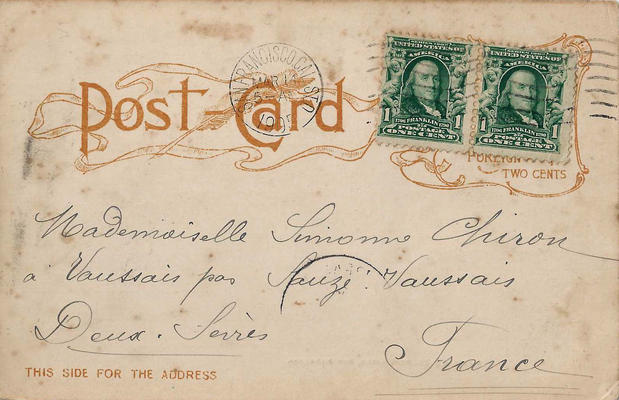 Post-Card
SAN FRANCISCO, CAL. STA.
1905
SERIES 1902
UNITED STATES OF
AMERICA
1706 FRANKLIN 1790
POSTAGE
1 ONE CENT 1
SERIES 1902
UNITED STATES OF
AMERICA
1706 FRANKLIN 1790
POSTAGE
1 ONE CENT 1
FOREIGN
TWO CENTS
Mademoiselle Simonne Chiron
à Vaussais par Sauzé-Vaussais
Deux-Sevrès
France
THIS SIDE FOR THE ADDRESS